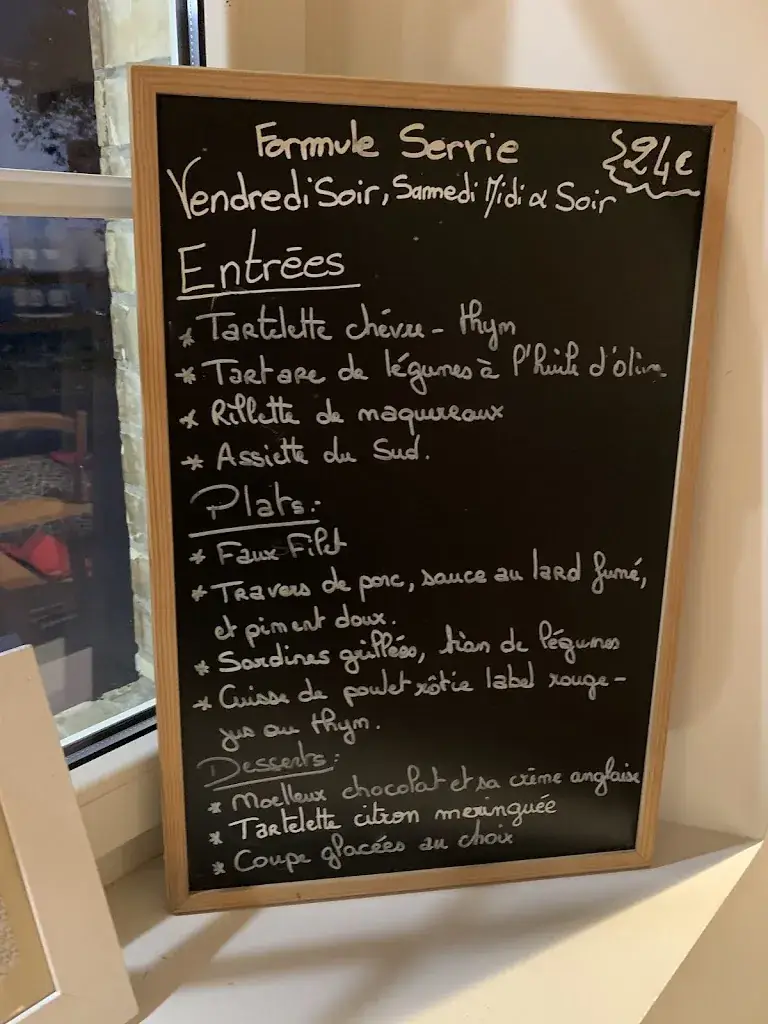 Formule Serrie
24€
Vendredi Soir, Samedi Midi & Soir
Entrées
* Tartelette chévre - thym
* Tartare de légumes à l'huile d'olive
* Rillette de maquereaux
* Assiette du Sud.
Plats:
* Faux Filet
* Travers de porc, sauce au lard fumé,
et piment doux.
* Sardines grillées, tian de légumes
* Cuisse de poulet rôtie label rouge -
jus au thym.
Desserts:
* Moelleux chocolat et sa crème anglaise
* Tartelette citron meringuée
* Coupe glacées au choix